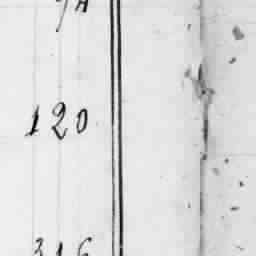 120
316